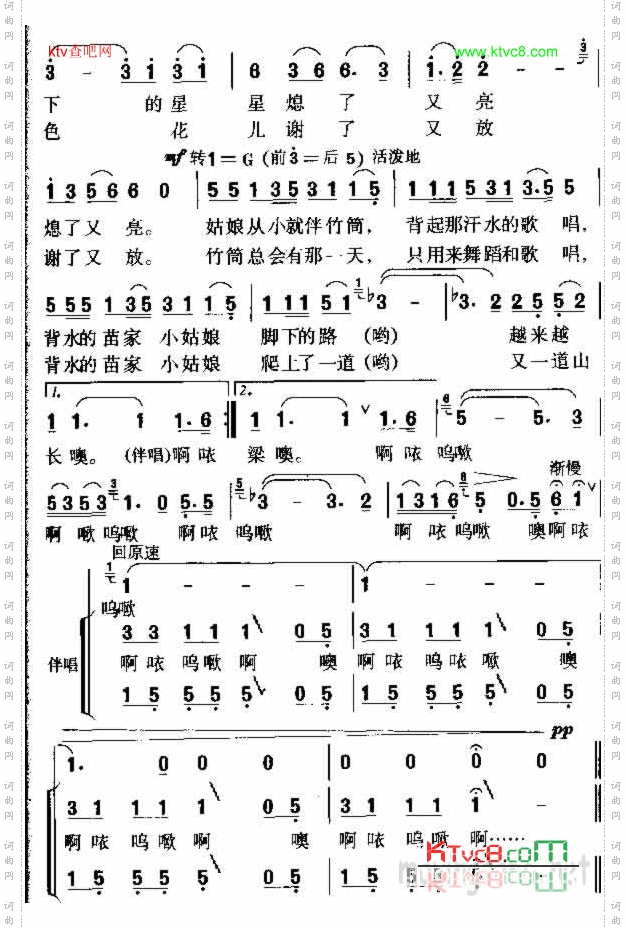 ktv查吧网 www.ktvc8.com
3 - 3 1 3 1 | 6 3 6 6. 3 | 1. 2 2 - - 3
下 的星 星熄 了 又 亮
色 花 儿谢 了 又 放
mf 转1=G (前3=后5) 活泼地
1 3 5 6 6 0 | 5 5 1 3 5 3 1 1 5 | 1 1 1 5 3 1 3.5 5
熄了又 亮。 姑娘从小就伴竹筒, 背起那汗水的歌 唱,
谢了又 放。 竹筒总会有那一天, 只用来舞蹈和歌 唱,
5 5 5 1 3 5 3 1 1 5 | 1 1 1 5 1 1 b3 - | b3. 2 2 5 5 2
背水的苗家 小姑娘 脚下的路 (哟) 越来越
背水的苗家 小姑娘 爬上了一道(哟) 又一道山
1. 2.
1 1. 1 1.6 :| 1 1. 1 1.6 | 6 5 - 5. 3
长噢。 (伴唱)啊咴 梁噢。 啊咴 呜噉
渐慢
5 3 5 3 3 1. 0 5.5 | 5 b3 - 3. 2 | 1 3 1 6 6 5 0.5 6 1
啊噉呜噉 啊咴 呜噉 啊 咴呜噉 噢啊咴
回原速
1 1 - - - | 1 - - -
呜噉
3 3 1 1 1 0 5 | 3 1 1 1 1 0 5
伴唱 啊咴呜噉啊 噢 啊咴 呜咴噉 噢
1 5 5 5 5 0 5 | 1 5 5 5 5 0 5
pp
1. 0 0 0 | 0 0 0 0
3 1 1 1 1 0 5 | 3 1 1 1 1
啊咴 呜噉啊 噢 啊咴 呜噉 啊……
KTvc8.com
1 5 5 5 5 0 5 | 1 5 5 5
词曲网